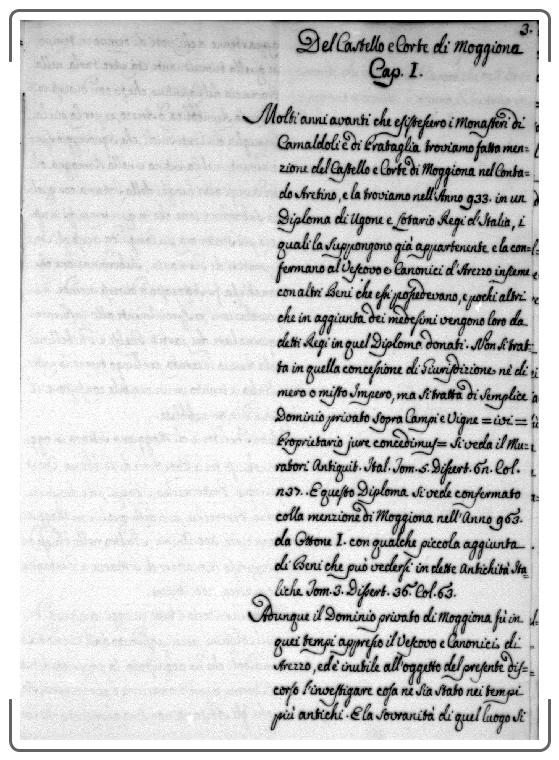 3.
Del Castello e Corte di Moggiona
Cap. I.
Molti anni avanti che esistessero i Monasteri di
Camaldoli e di Prataglia troviamo fatta men=
zione del Castello e Corte di Moggiona nel Conta=
do Aretino, e la troviamo nell'Anno 933. in un
Diploma di Ugone e Lotario Regi d'Italia, i
quali la suppongono già appartenente e la con=
fermano al Vescovo e Canonici d'Arezzo insieme
con altri Beni che essi possedevano, e pochi altri
che in aggiunta dei medesimi vengono loro da
detti Regi in quel Diploma donati. Non si trat=
ta in quella concessione di Giurisdizione nè di
mero o misto Impero, ma si tratta di semplice
Dominio privato sopra Campi e Vigne = ivi =
Proprietario jure concedimus = Si veda il Mu=
ratori Antiquit. Ital. Tom. 5. Dissert. Col.
E questo Diploma si vede confermato
colla menzione di Moggiona nell'Anno 963.
da Ottone I. con qualche piccola aggiunta
di Beni che può vedersi in dette Antichità Ita=
liche Tom. 3. Dissert. 36. Col. 63.
Adunque il Dominio privato di Moggiona fù in
quei tempi appresso il Vescovo e Canonici di
Arezzo, ed è inutile all'oggetto del presente dis=
corso l'investigare cosa ne sia stato nei tempi
più antichi. E la sovranità di quel luogo si